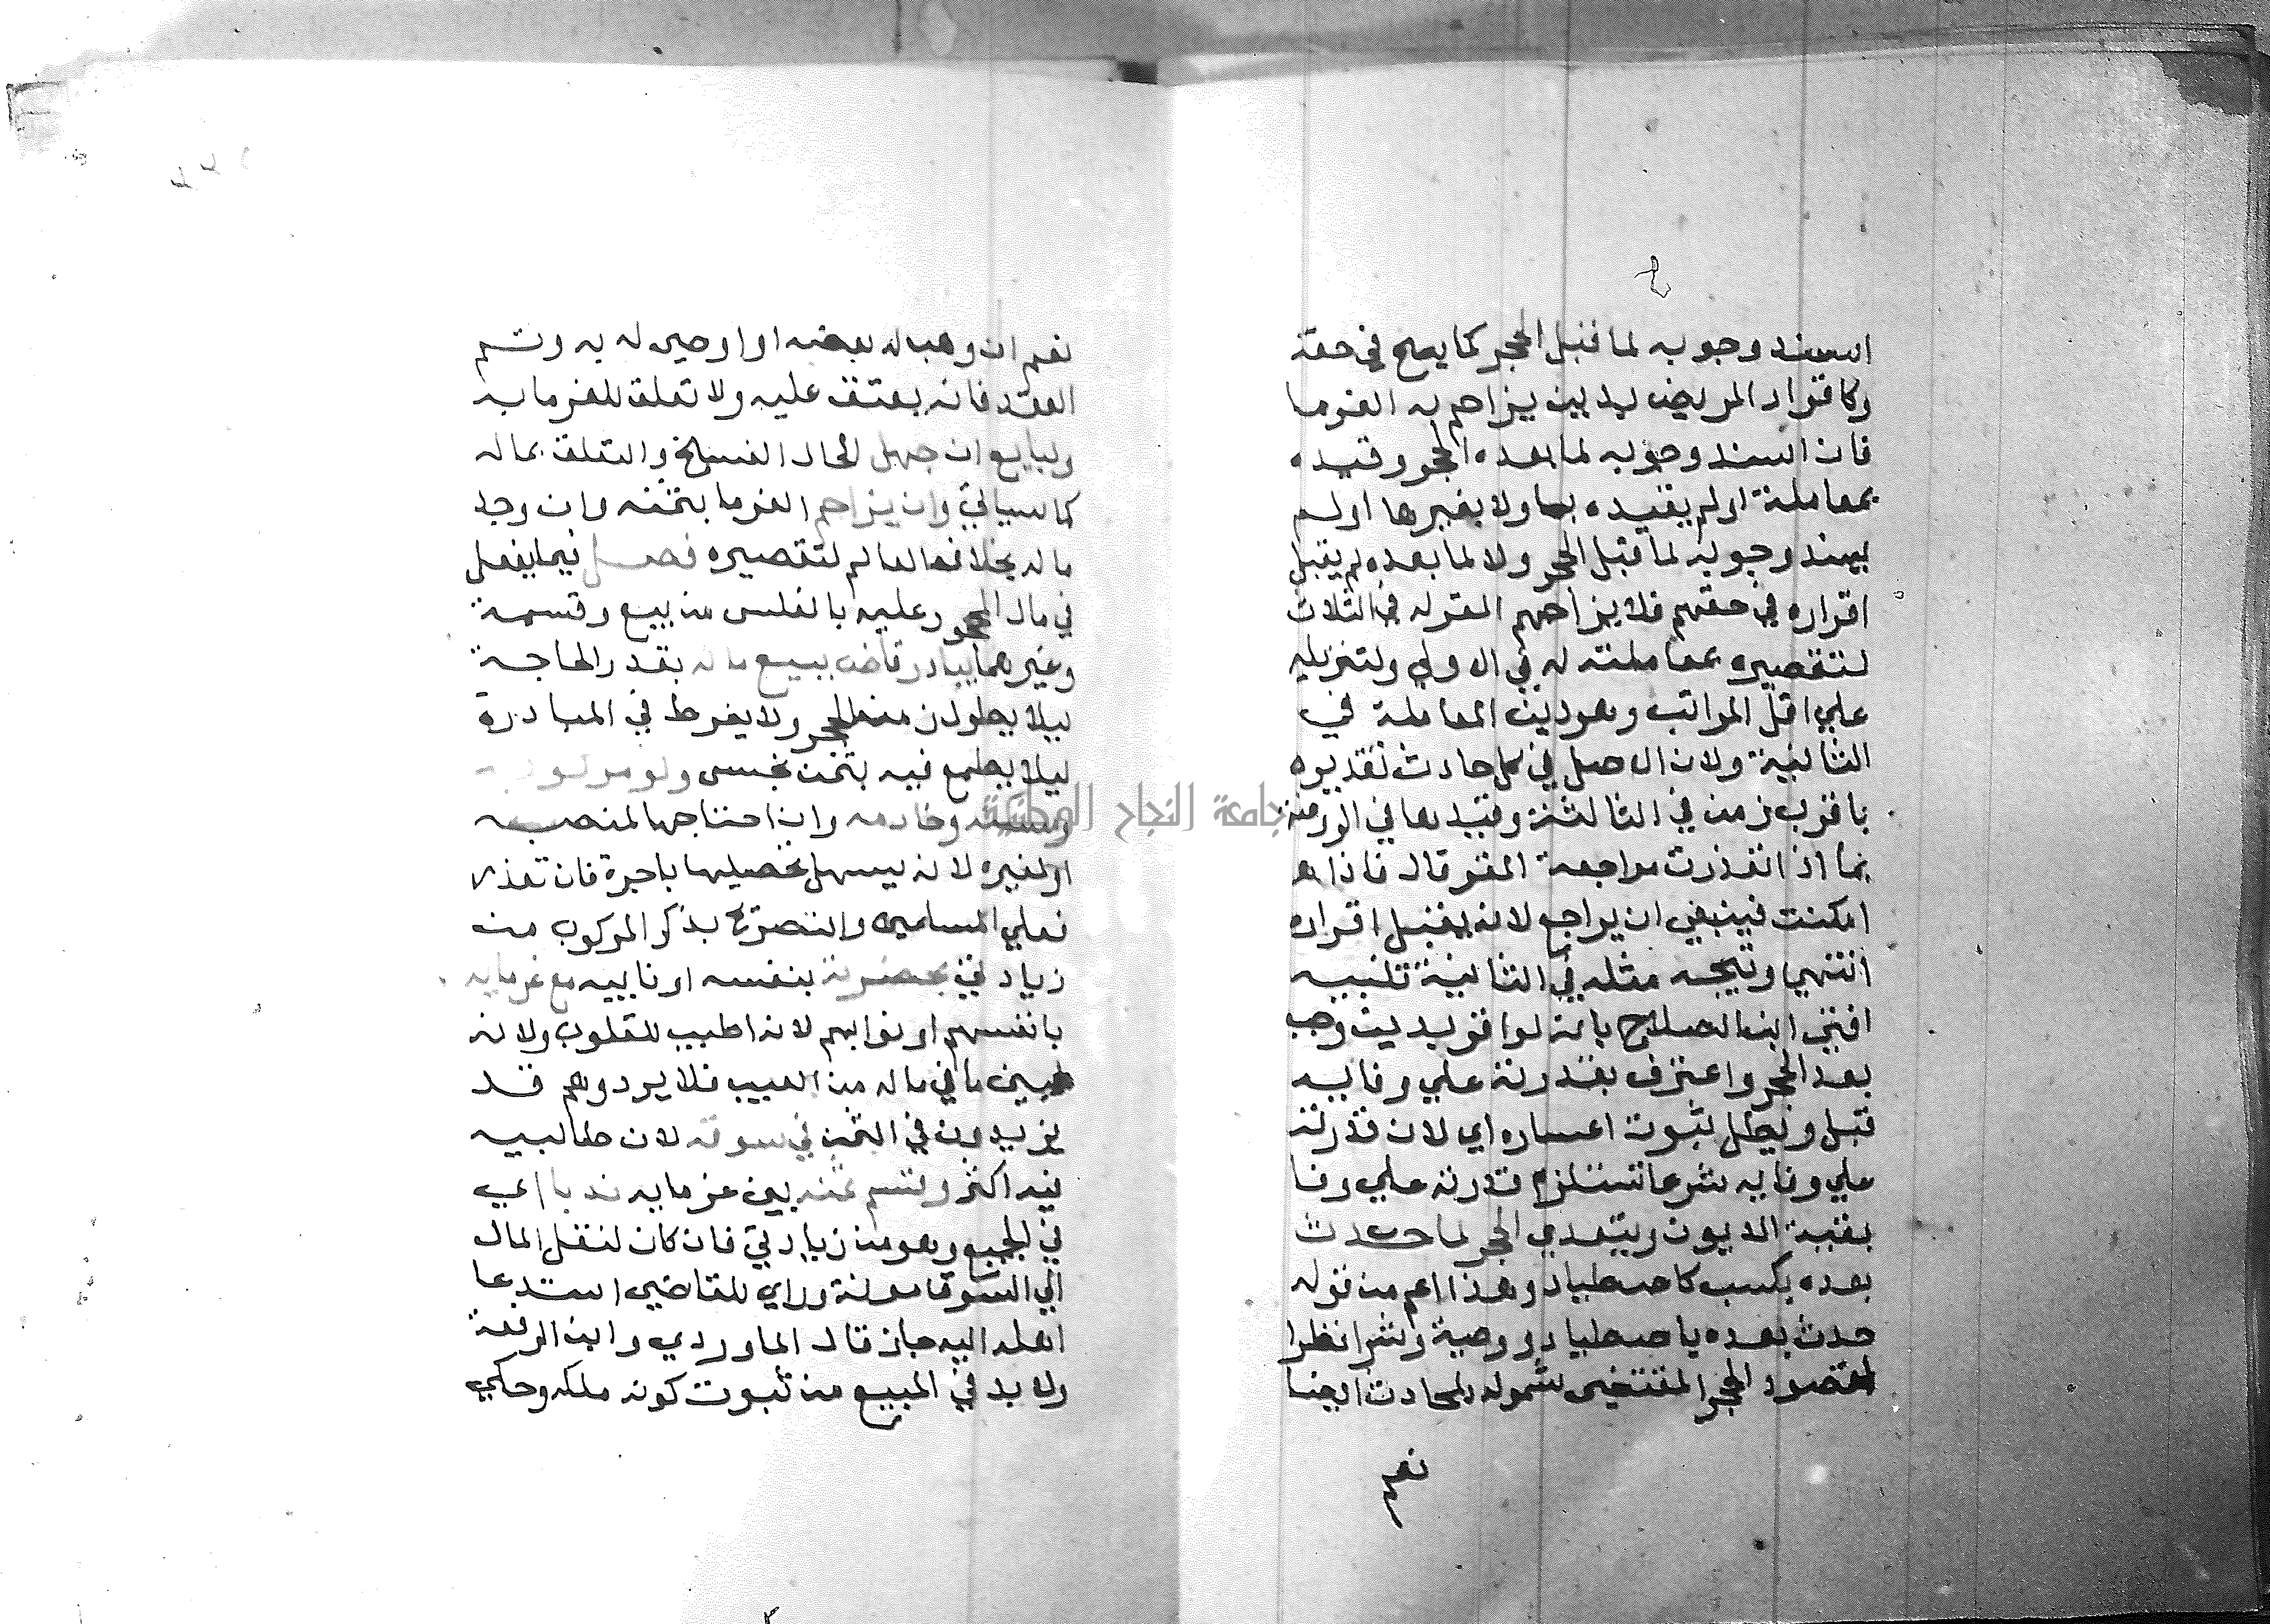 اسند وجوبه لما قبل الحجر كما يصح في حقه
وكاقرار المريض بدين يزاحم به الغرما
فان اسند وجوبه لما بعده الحجر وقيده
بمعاملة او لم يقيده بها ولا بغيرها او لم
يسند وجوبه لما قبل الحجر ولا لما بعده لم يقبل
اقراره في حقهم فلا يزاحمهم المقر له في الثلاث
لتقصيره بمعاملته له في الاولي ولتنزيله
علي اقل المراتب وهو دين المعاملة في
الثانية ولان الاصل في كل حادث تقديره
باقرب زمن في الثالثة وقيدها في الروضة
بما اذا تعذرت مراجعة المقر قال فاذا
امكنت فينبغي ان يراجع لانه يقبل اقراره
انتهي ويتجه مثله في الثانية تنبيه
افتي ابن الصلاح بانه لو اقر بدين وجب
بعد الحجر واعترف بقدرته علي وفايه
قبل وبطل ثبوت اعساره اي لان قدرته
علي وفايه شرعا تستلزم قدرته علي وفا
بقية الديون ويتعدي الحجر لما حدث
بعده بكسب كاصطياد وهذا اعم من قوله
حدث بعده باصطياد ووصية وشرا نظرا
لمقصود الحجر المقتضي شموله للحادث ايضا
نعم
نعم ان وهب له بعضه او اوصي له به وتم
العقد فانه يعتق عليه ولا تعلق للغرما به
ولبايع ان جهل الحال الفسخ والتعلق بماله
كما سياتي وان يزاحم الغرما بثمنه وان وجد
ماله بخلاف العالم لتقصيره فصل فيما يفعل
في مال المحجور عليه بالفلس من بيع وقسمة
وغيرهما يبادر قاض ببيع ماله بقدر الحاجة
ليلا يطول زمن الحجر ولا يفرط في المبادرة
ليلا يطمع فيه بثمن بخس ولو مركوبه
ومسكنه وخادمه وان احتاجها لمنصبه
او لغيره لانه يسهل تحصيلها باجرة فان تعذر
فعلي المسلمين والتصريح بذكر المركوب من
زيادتي بحضرته بنفسه او نايبه مع غرمايه
بانفسهم او نوابهم لانه اطيب للقلوب ولانه
يبين ما في ماله من العيب فلا يرد وهم قد
يزيدون في الثمن في سوقه لان طالبيه
فيه اكثر وقسم ثمنه بين غرمايه ندبا اي
في الجميع وهو من زيادتي فان كان لنقل المال
الي السوق مونة وراي القاضي استدعا
اهله اليه جاز قال الماوردي وابن الرفعة
ولا بد في المبيع من ثبوت كونه ملكه وحكي
جامعة النجاح الوطنية